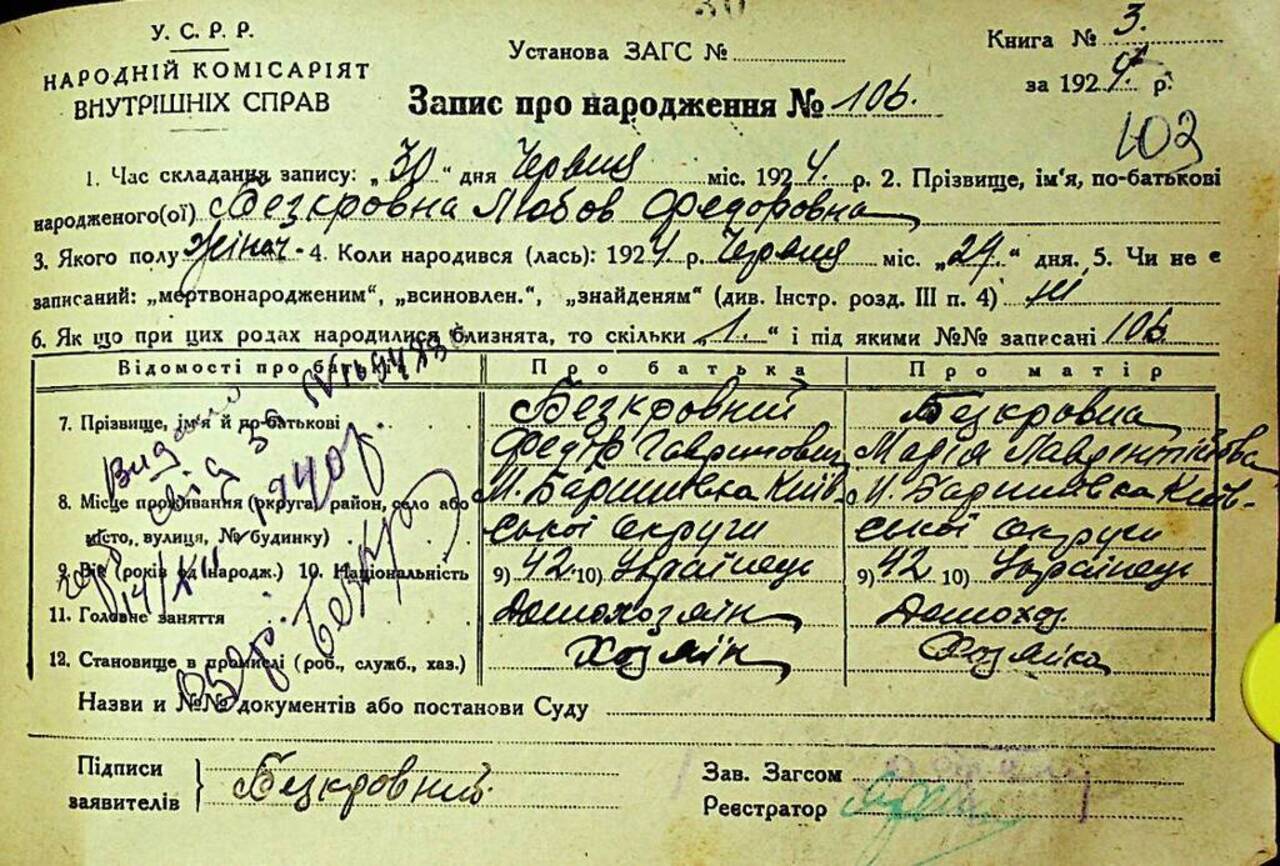 У. С. Р. Р.
НАРОДНІЙ КОМІСАРІЯТ
ВНУТРІШНІХ СПРАВ
Установа ЗАГС №
Книга № 3.
за 1924 р.
Запис про народження № 106.
103
1. Час складання запису: „30“ дня Червня міс. 1924. р. 2. Прізвище, ім'я, по-батькові
народженого(ої) Безкровна Любов Федоровна
3. Якого полу жіноч - 4. Коли народився (лась): 1924 р. Червня міс. „24.“ дня. 5. Чи не є
записаний: „мертвонародженим“, „всиновлен.“, „знайденям“ (див. Інстр. розд. III п. 4) ні
6. Як що при цих родах народилися близнята, то скільки „1.“ і під якими №№ записані 106
Відомості про батьків Про батька Про матір
7. Прізвище, ім'я й по-батькові Безкровний Безкровна
Федір Гаврилович Марія Лаврентійовна
8. Місце проживання (округа, район, село або М. Баришівка Київ- М. Баришівка Київ-
місто, вулиця, № будинку) ської округи ської округи
9. Вік (років від народж.) 10. Національність 9) 42. 10) Українець 9) 42 10) Українець
11. Головне заняття Домохозяїн Домохоз.
12. Становище в промислі (роб., служб., хаз.) Хозяїн Хозяйка
Назви и №№ документів або постанови Суду
Підписи
заявителів Безкровний
Зав. Загсом
Реєстратор